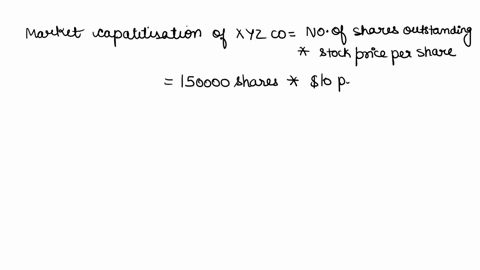 Market capatilisation of XYZ CO = No. of shares outstanding
* stock price per share
= 150000 shares * $10 p